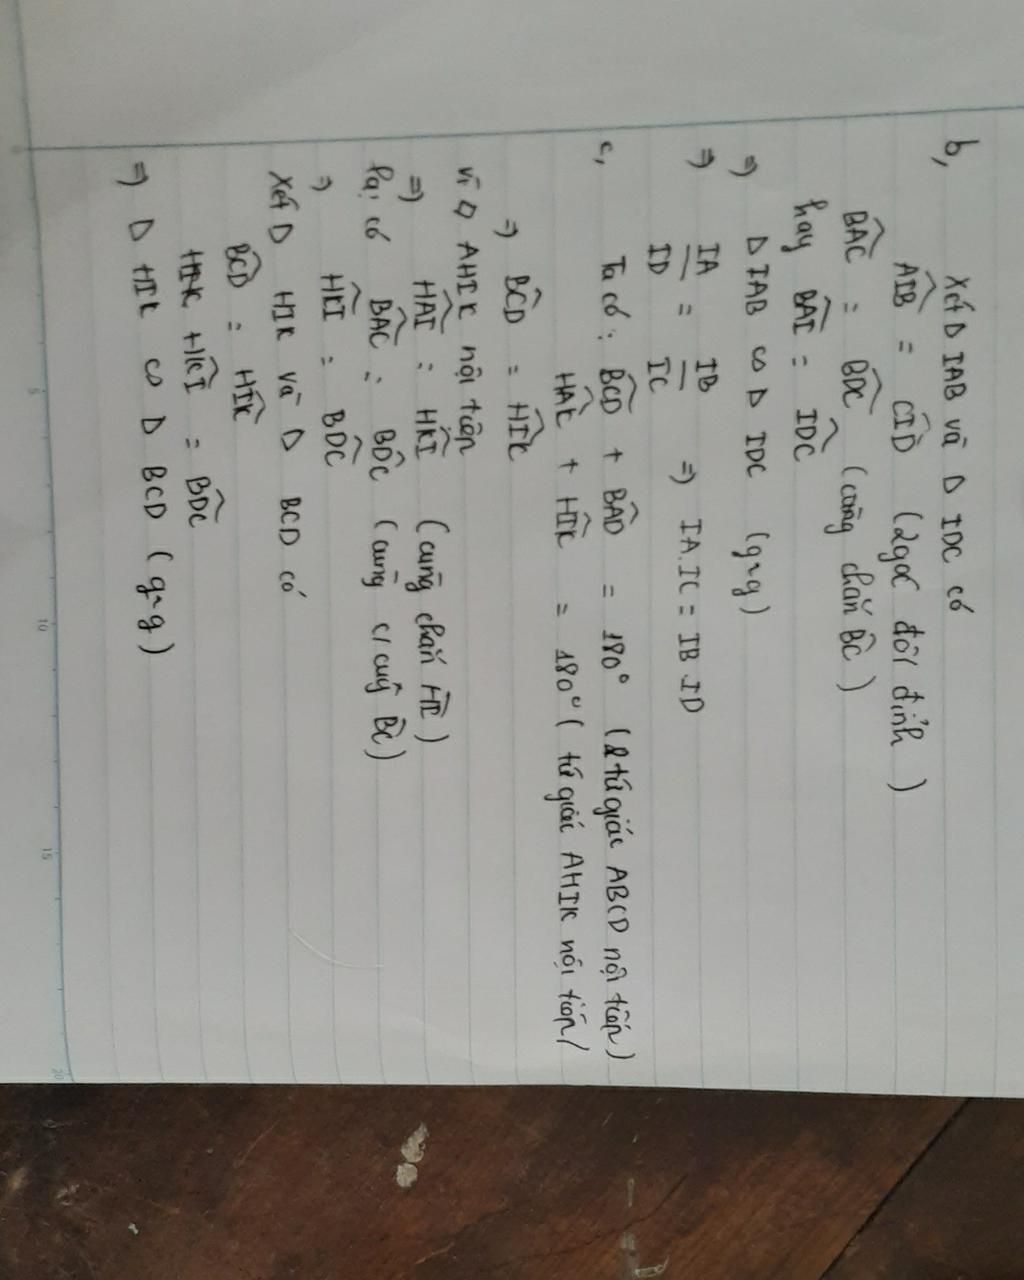 b, Xét Δ IAB và Δ IDC có
AIB = CID (2 góc đối đỉnh)
BAC = BDC (cùng chắn BC)
hay BAI = IDC
⇒ Δ IAB ∽ Δ IDC (g-g)
⇒ IA/ID = IB/IC ⇒ IA.IC = IB.ID
c, Ta có : BCD + BAD = 180° (tứ giác ABCD nội tiếp)
HAK + HIK = 180° (tứ giác AHIK nội tiếp)
⇒ BCD = HIK
vì AHIK nội tiếp
⇒ HAI = HKI (cùng chắn HI)
lại có BAC = BDC (cùng c/ cung BC)
⇒ HKI = BDC
Xét Δ HIK và Δ BCD có
BCD = HIK
HKI = BDC
⇒ Δ HIK ∽ Δ BCD (g-g)
5
10
15
20